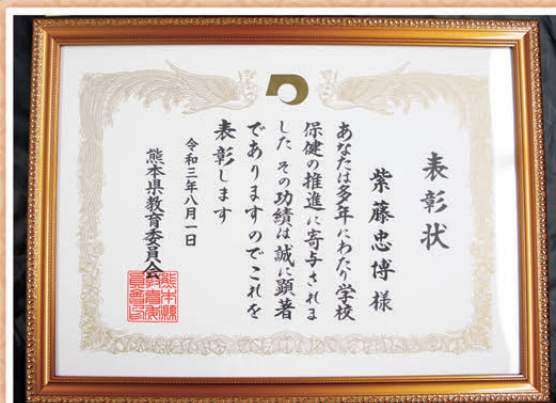 表彰状
紫藤忠博様
あなたは多年にわたり学校
保健の推進に寄与されま
した その功績は誠に顕著
でありますのでこれを
表彰します
令和三年八月一日
熊本県教育委員会